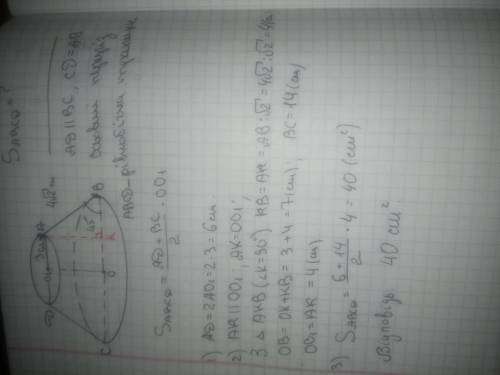 S_ABCD = ?
AD ∥ BC, CD = AB
Осьовий переріз
ABCD - рівнобічна трапеція
D
O₁
3см
A
4√2 см
45°
B
C
O
K
S_ABCD = (AD + BC)/2 · OO₁
1) AD = 2AO₁ = 2·3 = 6 см.
2) AK ∥ OO₁, AK = OO₁;
З △ AKB (∠K = 90°) KB = AK = AB : √2 = 4√2 : √2 = 4(см)
OB = OK + KB = 3 + 4 = 7 (см); BC = 14 (см)
OO₁ = AK = 4 (см)
3) S_ABCD = (6 + 14)/2 · 4 = 40 (см²)
Відповідь: 40 см²